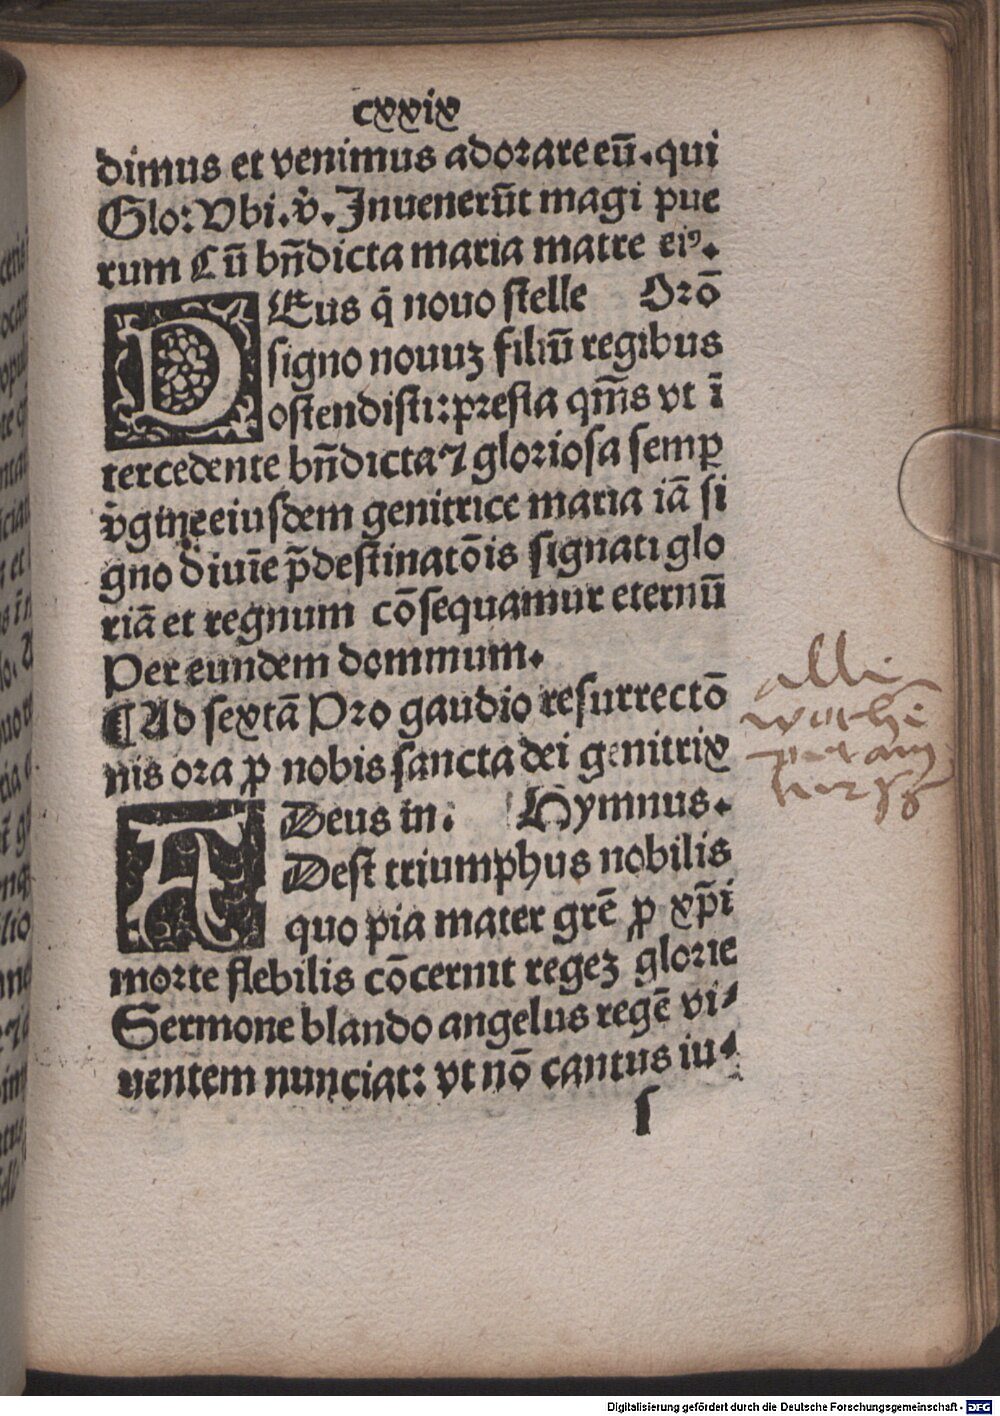 cxxix
dimus et venimus adorare eū. qui
Glo: Vbi. v̄. Inuenerūt magi pue
rum Cū bn̄dicta maria matre eiꝰ.
DEus q̄ nouo stelle Orō
signo nouuꝫ filiū regibus
ostendisti: presta qm̄s vt ī
tercedente bn̄dicta ⁊ gloriosa semꝑ
v̄gine eiusdem genitrice maria iā si
gno diuīe p̄destinatōis signati glo
riā et regnum cōsequamur eternū
Per eundem dominum.
¶ Ad sextā Pro gaudio resurrectō
nis ora ꝓ nobis sancta dei genitrix
Deus in: Hymnus.
ADest triumphus nobilis
quo pia mater grē ꝓ xp̄i
morte flebilis cōcernit regeꝫ glorie
Sermone blando angelus regē vi⸗
uentem nunciat: vt nō cantus iu⸗
s
alle